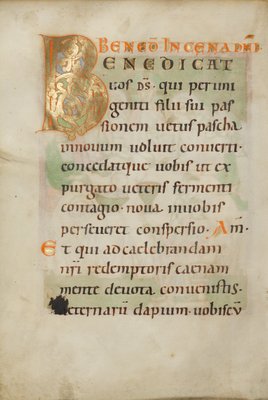 BENED̄ IN CENA DN̄I
BENEDICAT
uos d̄s · qui per uni
geniti filii sui pas
sionem uetus pascha
in nouum uoluit conuerti ·
concedatque uobis ut ex
purgato ueteris fermenti
contagio · noua in uobis
perseueret conspersio · AM̄ ·
Et qui ad caelebrandam
nr̄i redemptoris caenam
mente deuota conuenistis ·
aeternarū dapium uobiscū